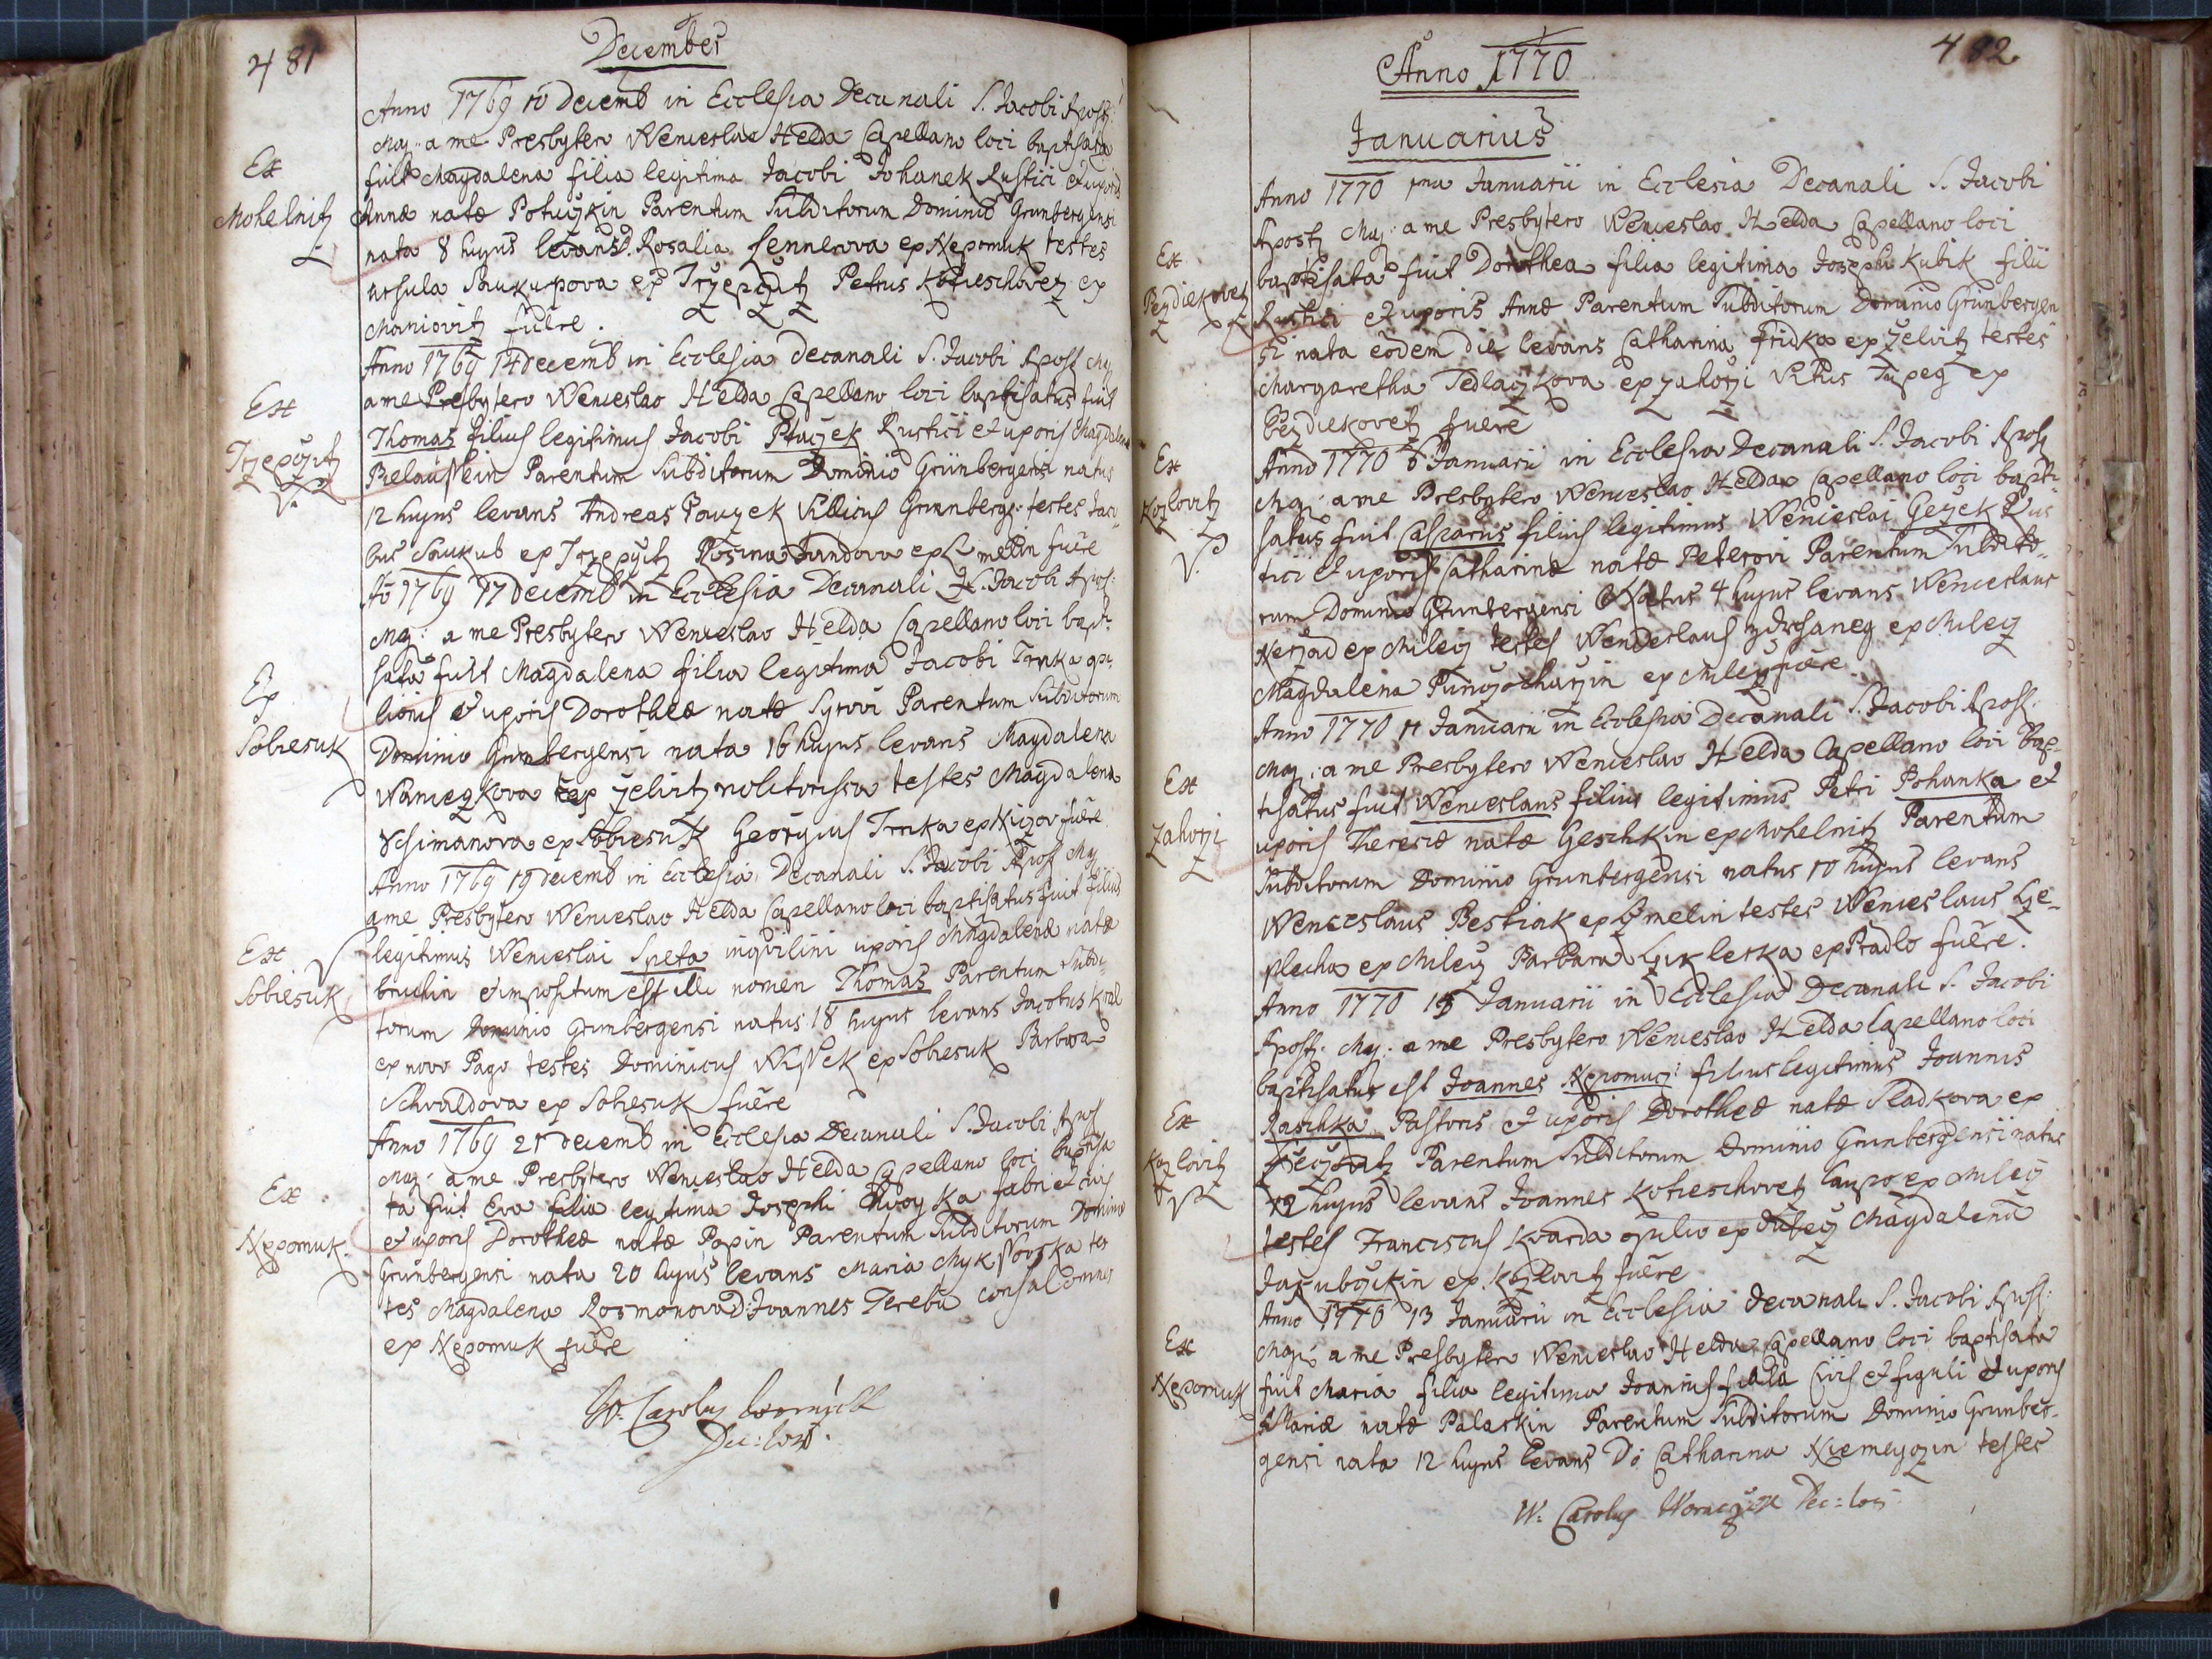 481
December
Anno 1769 10 Decemb in Ecclesia Decanali S. Jacobi Apost:
Maj: a me Presbytero Wenceslao Helda Capellano loci baptisata
fuit Magdalena filia legitima Jacobi Johanek Rustici et uxoris
Ex
Mohelnitz
Annæ natæ Potuczkin Parentum Subditorum Dominio Grunbergensi
nata 8 hujus levans D. Rosalia Jennerova ex Nepomuk testes
Ursula Saukupova ex Trzepczitz Petrus Kotieschovetz ex
Maniovitz fuere.
Anno 1769 14 decemb in Ecclesia decanali S. Jacobi Apost Maj
a me Presbytero Wenceslao Helda Capellano loci baptisatus fuit
Ex
Trzepczitz
Thomas filius legitimus Jacobi Ptaczek Rustici et uxoris Magdalenæ
Parentum Subditorum Dominio Grünbergensi natus
12 hujus levans Andreas Pauzek Villicus Grunberg: testes Jaco
bus Saukub ex Trzepczitz Rosina Jandova ex fuere
Ao 1769 17 decemb in Ecclesia Decanali S. Jacobi Apos:
Maj: a me Presbytero Wenceslao Helda Capellano loci bapti
sata fuit Magdalena filia legitima Jacobi Trnka opi
Ex
Sobiesuk
lionis et uxoris Dorotheæ natæ Syrovi Parentum Subditorum
Dominio Grunbergensi nata 16 hujus levans Magdalena
ex Zelvitz molitorissa testes Magdalena
Schimanova ex Sobiesuk Georgius Trnka ex fuere
Anno 1769 19 decemb in Ecclesia Decanali S. Jacobi Apos Maj
a me Presbytero Wenceslao Helda Capellano loci baptisatus fuit filius
Ex
Sobiesuk
legitimus Wenceslai Speta inqvilini uxoris Magdalenæ natæ
et impositum est illi nomen Thomas Parentum Subdi
torum Dominio Grunbergensi natus 18 hujus levans Jacobus Kral
ex novo Pago testes Dominicus ex Sobiesuk Barbora
Schvaldova ex Sobiesuk fuere
Anno 1769 21 decemb in Ecclesia Decanali S. Jacobi Apos
Maj: a me Presbytero Wenceslao Helda Capellano loci baptisa
Ex
Nepomuk
ta fuit Eva filia legitima Josephi fabri et civis
et uxoris Dorotheæ natæ Papin Parentum Subditorum Dominio
Grunbergensi nata 20 hujus levans Maria tes
tes Magdalena Rosmanova D: Joannes Tereba
ex Nepomuk fuere
W: Carolus
Dec: loci.
482
Anno 1770
Januarius
Anno 1770 1ma Januarii in Ecclesia Decanali S. Jacobi
Apost: Maj: a me Presbytero Wenceslao Helda Capellano loci
Ex
Bezdiekovetz
baptisata fuit Dorothea filia legitima Josephi Kubik filii
Rustici et uxoris Annæ Parentum Subditorum Dominio Grunbergen
si nata eodem die levans Catharina Fridka ex Zelvitz testes
Margaretha Sedlaczkova ex Zahorzi Vitus Tupeg ex
Bezdiekovetz fuere
Ex
Kozlovitz
Anno 1770 6 Januarii in Ecclesia Decanali S. Jacobi Apost
Maj: a me Presbytero Wenceslao Helda Capellano loci bapti
satus fuit Casparus filius legitimus Wenceslai Gezek Rus
tici et uxoris Catharinæ natæ Peterovi Parentum Subdito
rum Dominio Grunbergensi Natus 4 hujus levans Wenceslaus
Nerzad ex Milecz testes Wenceslaus ex Milecz
Magdalena ex Milecz fuere.
Anno 1770 11 Januarii in Ecclesia Decanali S. Jacobi Apost.
Maj: a me Presbytero Wenceslao Helda Capellano loci Bap
Ex
Zahorzi
tisatus fuit Wenceslaus filius legitimus Petri Pohanka et
uxoris Theresiæ natæ Geschkin ex Mohelnitz Parentum
Subditorum Dominio Grunbergensi natus 10 hujus levans
Wenceslaus Bestiak ex testes Wenceslaus
plecha ex Milecz Barbara ex Pradlo fuere.
Anno 1770 13 Januarii in Ecclesia Decanali S. Jacobi
Apost: Maj: a me Presbytero Wenceslao Helda Capellano loci
baptisatus est Joannes Nepomuc: filius legitimus Joannis
Ex
Kozlovitz
Raschka Pastoris et uxoris Dorotheæ natæ Sladkova ex
Parentum Subditorum Dominio Grunbergensi natus
12 hujus levans Joannes Kotieschovetz Caupo ex Milecz
testes Franciscus Kvarda opilio ex Dubecz Magdalena
Jakubczikin ex Kozlovitz fuere
Anno 1770 13 Januarii in Ecclesia decanali S. Jacobi Apost:
Ex
Nepomuk
Maj: a me Presbytero Wenceslao Helda Capellano loci baptisata
fuit Maria filia legitima Joannis Fiala Civis et figuli et uxoris
Mariæ natæ Palackin Parentum Subditorum Dominio Grunber
gensi nata 12 hujus levans D: Catharina Niemeyczin testes
W: Carolus Woraczizk Dec: loci